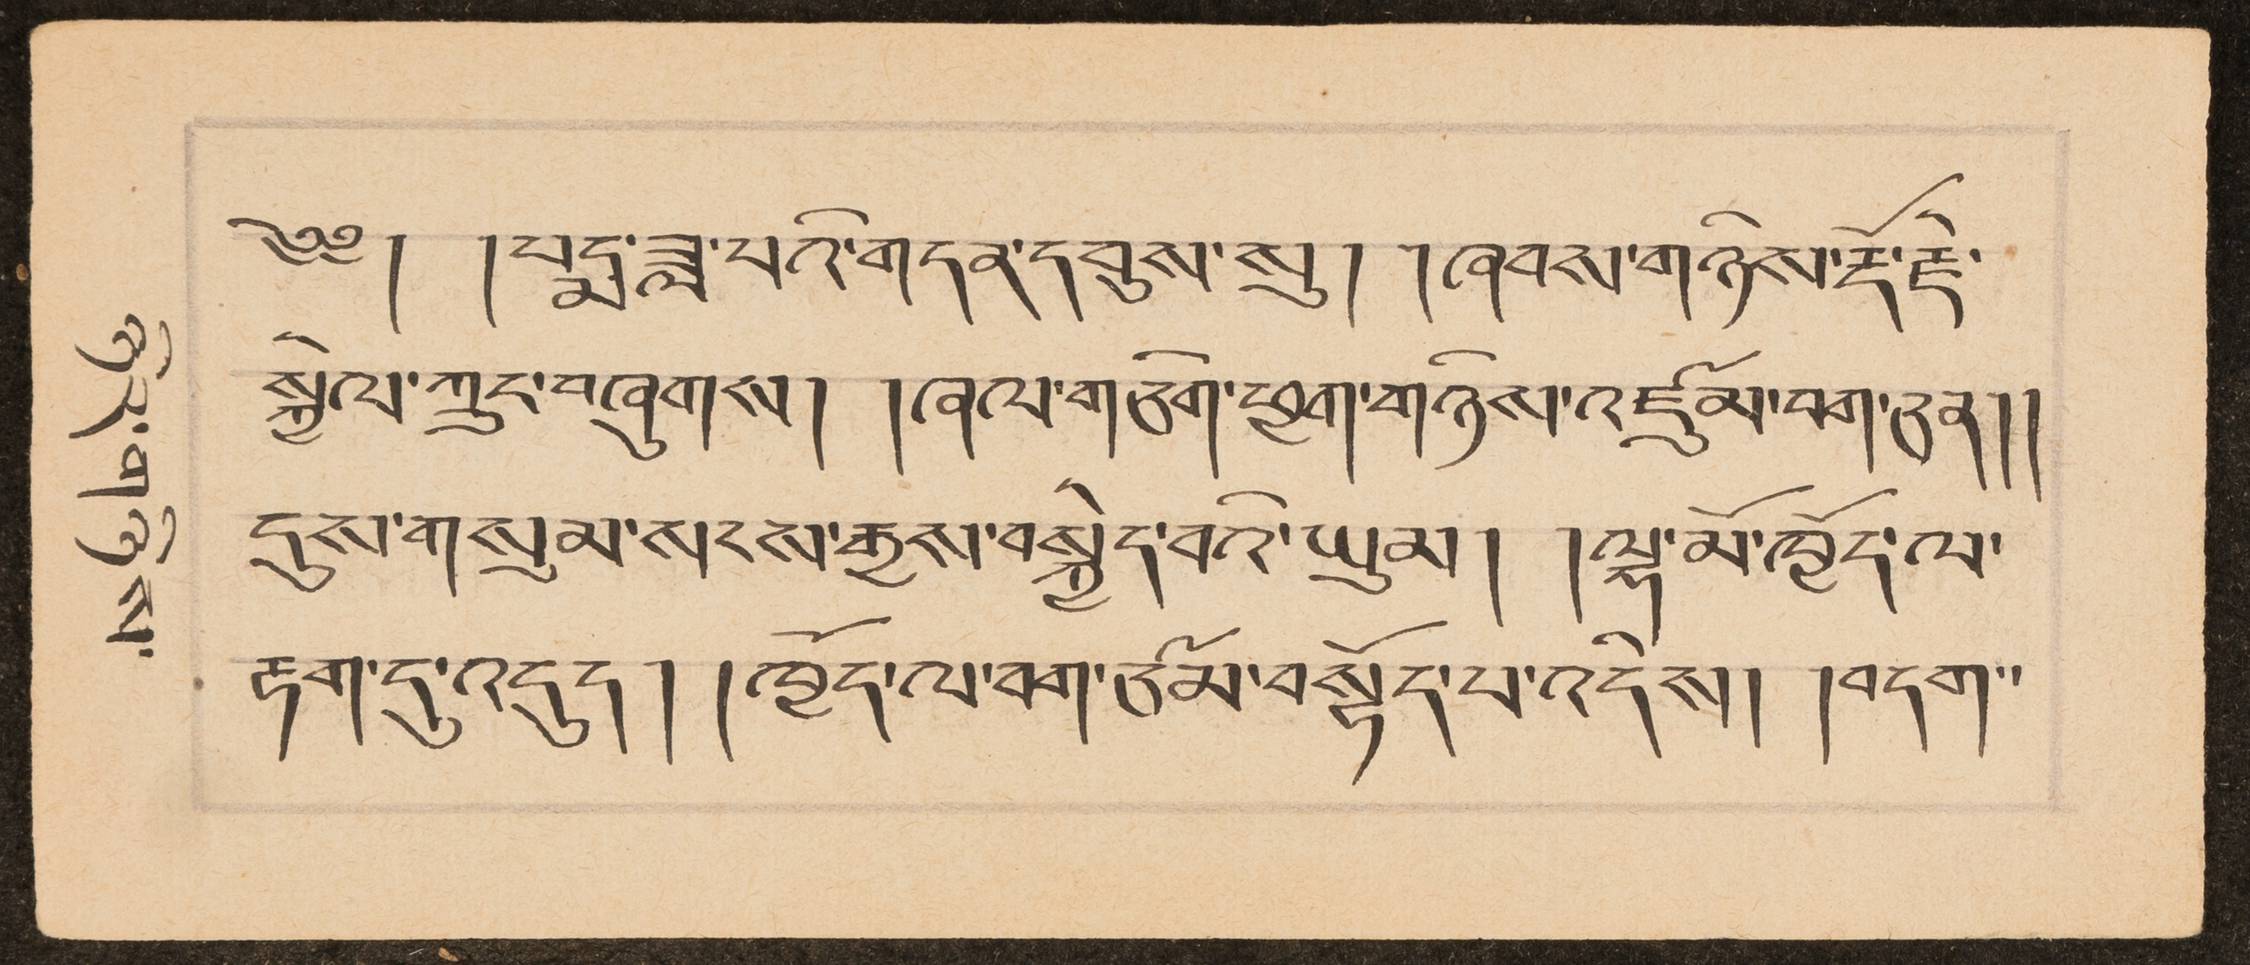 ༄༅། །པདྨ་ཟླ་པའི་གདན་དབུས་སུ། །ཞབས་གཉིས་རྡོ་རྗེ་
སྐྱེལ་ཀྲུང་བཞུགས། །ཞལ་གཅིག་ཕྱག་གཉིས་འཛུམ་བག་ཅན།།
དུས་གསུམ་སངས་རྒྱས་བསྐྱེད་བའི་ཡུམ། །ལྷ་མོ་ཁྱོད་ལ་
རྟག་དུ་འདུད། །ཁྱོད་ལ་བག་ཙམ་བསྟོད་པ་འདིས། །བདག་་